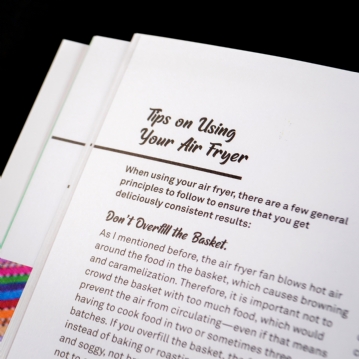 Tips on Using
Your Air Fryer
When using your air fryer, there are a few general
principles to follow to ensure that you get
deliciously consistent results:
Don't Overfill the Basket.
As I mentioned before, the air fryer fan blows hot air
around the food in the basket, which causes browning
and caramelization. Therefore, it is important not to
crowd the basket with too much food, which would
prevent the air from circulating—even if that means
having to cook food in two or sometimes three
batches. If you overfill the basket, the
instead of baking or roasting
and soggy, not
not to